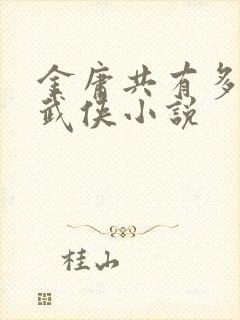 金庸共有多
武侠小説
桂山